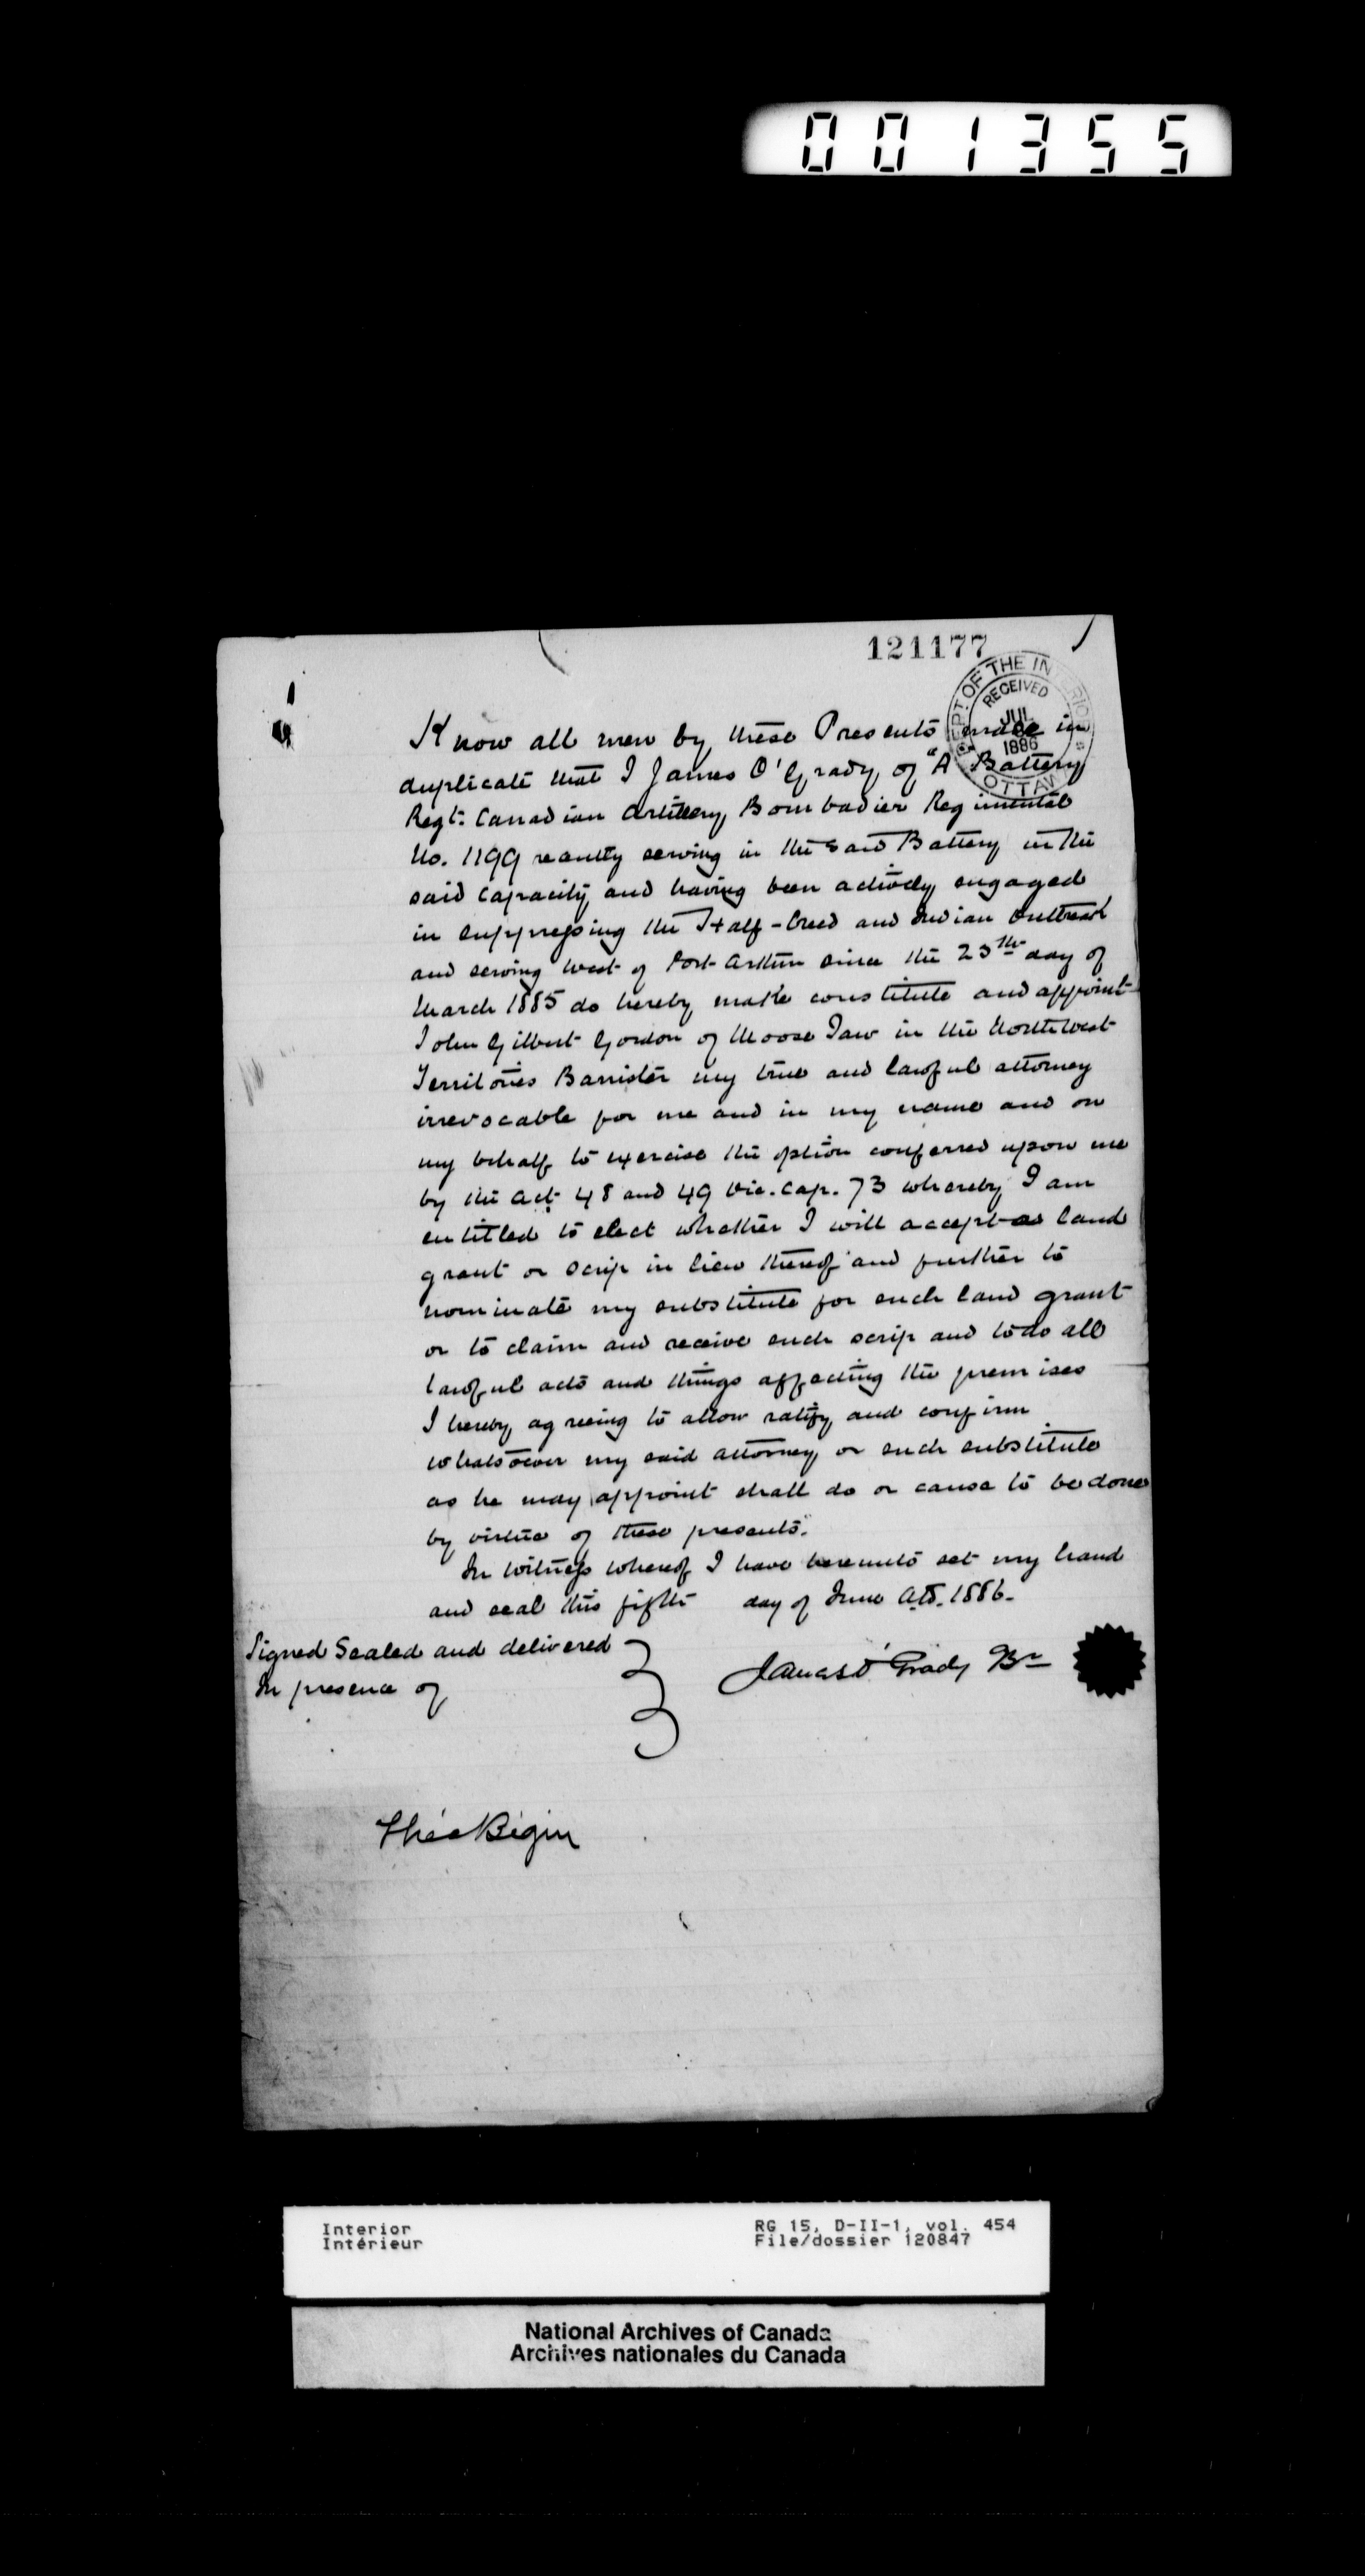 001355
121177
DEPT. OF THE INTERIOR
RECEIVED
JUL
1886
OTTAWA
Know all men by these Presents made in
duplicate that I James O'Grady of "A" Battery
Regt. Canadian Artillery, Bombadier Regimental
No. 1199 recently serving in the said Battery in the
said capacity and having been actively engaged
in suppressing the Half-breed and Indian Outbreak
and serving west of Port Arthur since the 25th day of
March 1885 do hereby make constitute and appoint
John Gilbert Gordon of Moose Jaw in the North West
Territories Barrister my true and lawful attorney
irrevocable for me and in my name and on
my behalf to exercise the option conferred upon me
by the Act 48 and 49 Vic. Cap. 73 whereby I am
entitled to elect whether I will accept a land
grant or scrip in lieu thereof and further to
nominate my substitute for such land grant
or to claim and receive such scrip and to do all
lawful acts and things affecting the premises
I hereby agreeing to allow ratify and confirm
whatsoever my said attorney or such substitute
as he may appoint shall do or cause to be done
by virtue of these presents.
In witness whereof I have hereunto set my hand
and seal this fifth day of June A.D. 1886.
Signed Sealed and delivered
In presence of
James O'Grady Br
Théo Bégin
Interior
Intérieur
RG 15, D-II-1, vol. 454
File/dossier 120847
National Archives of Canada
Archives nationales du Canada